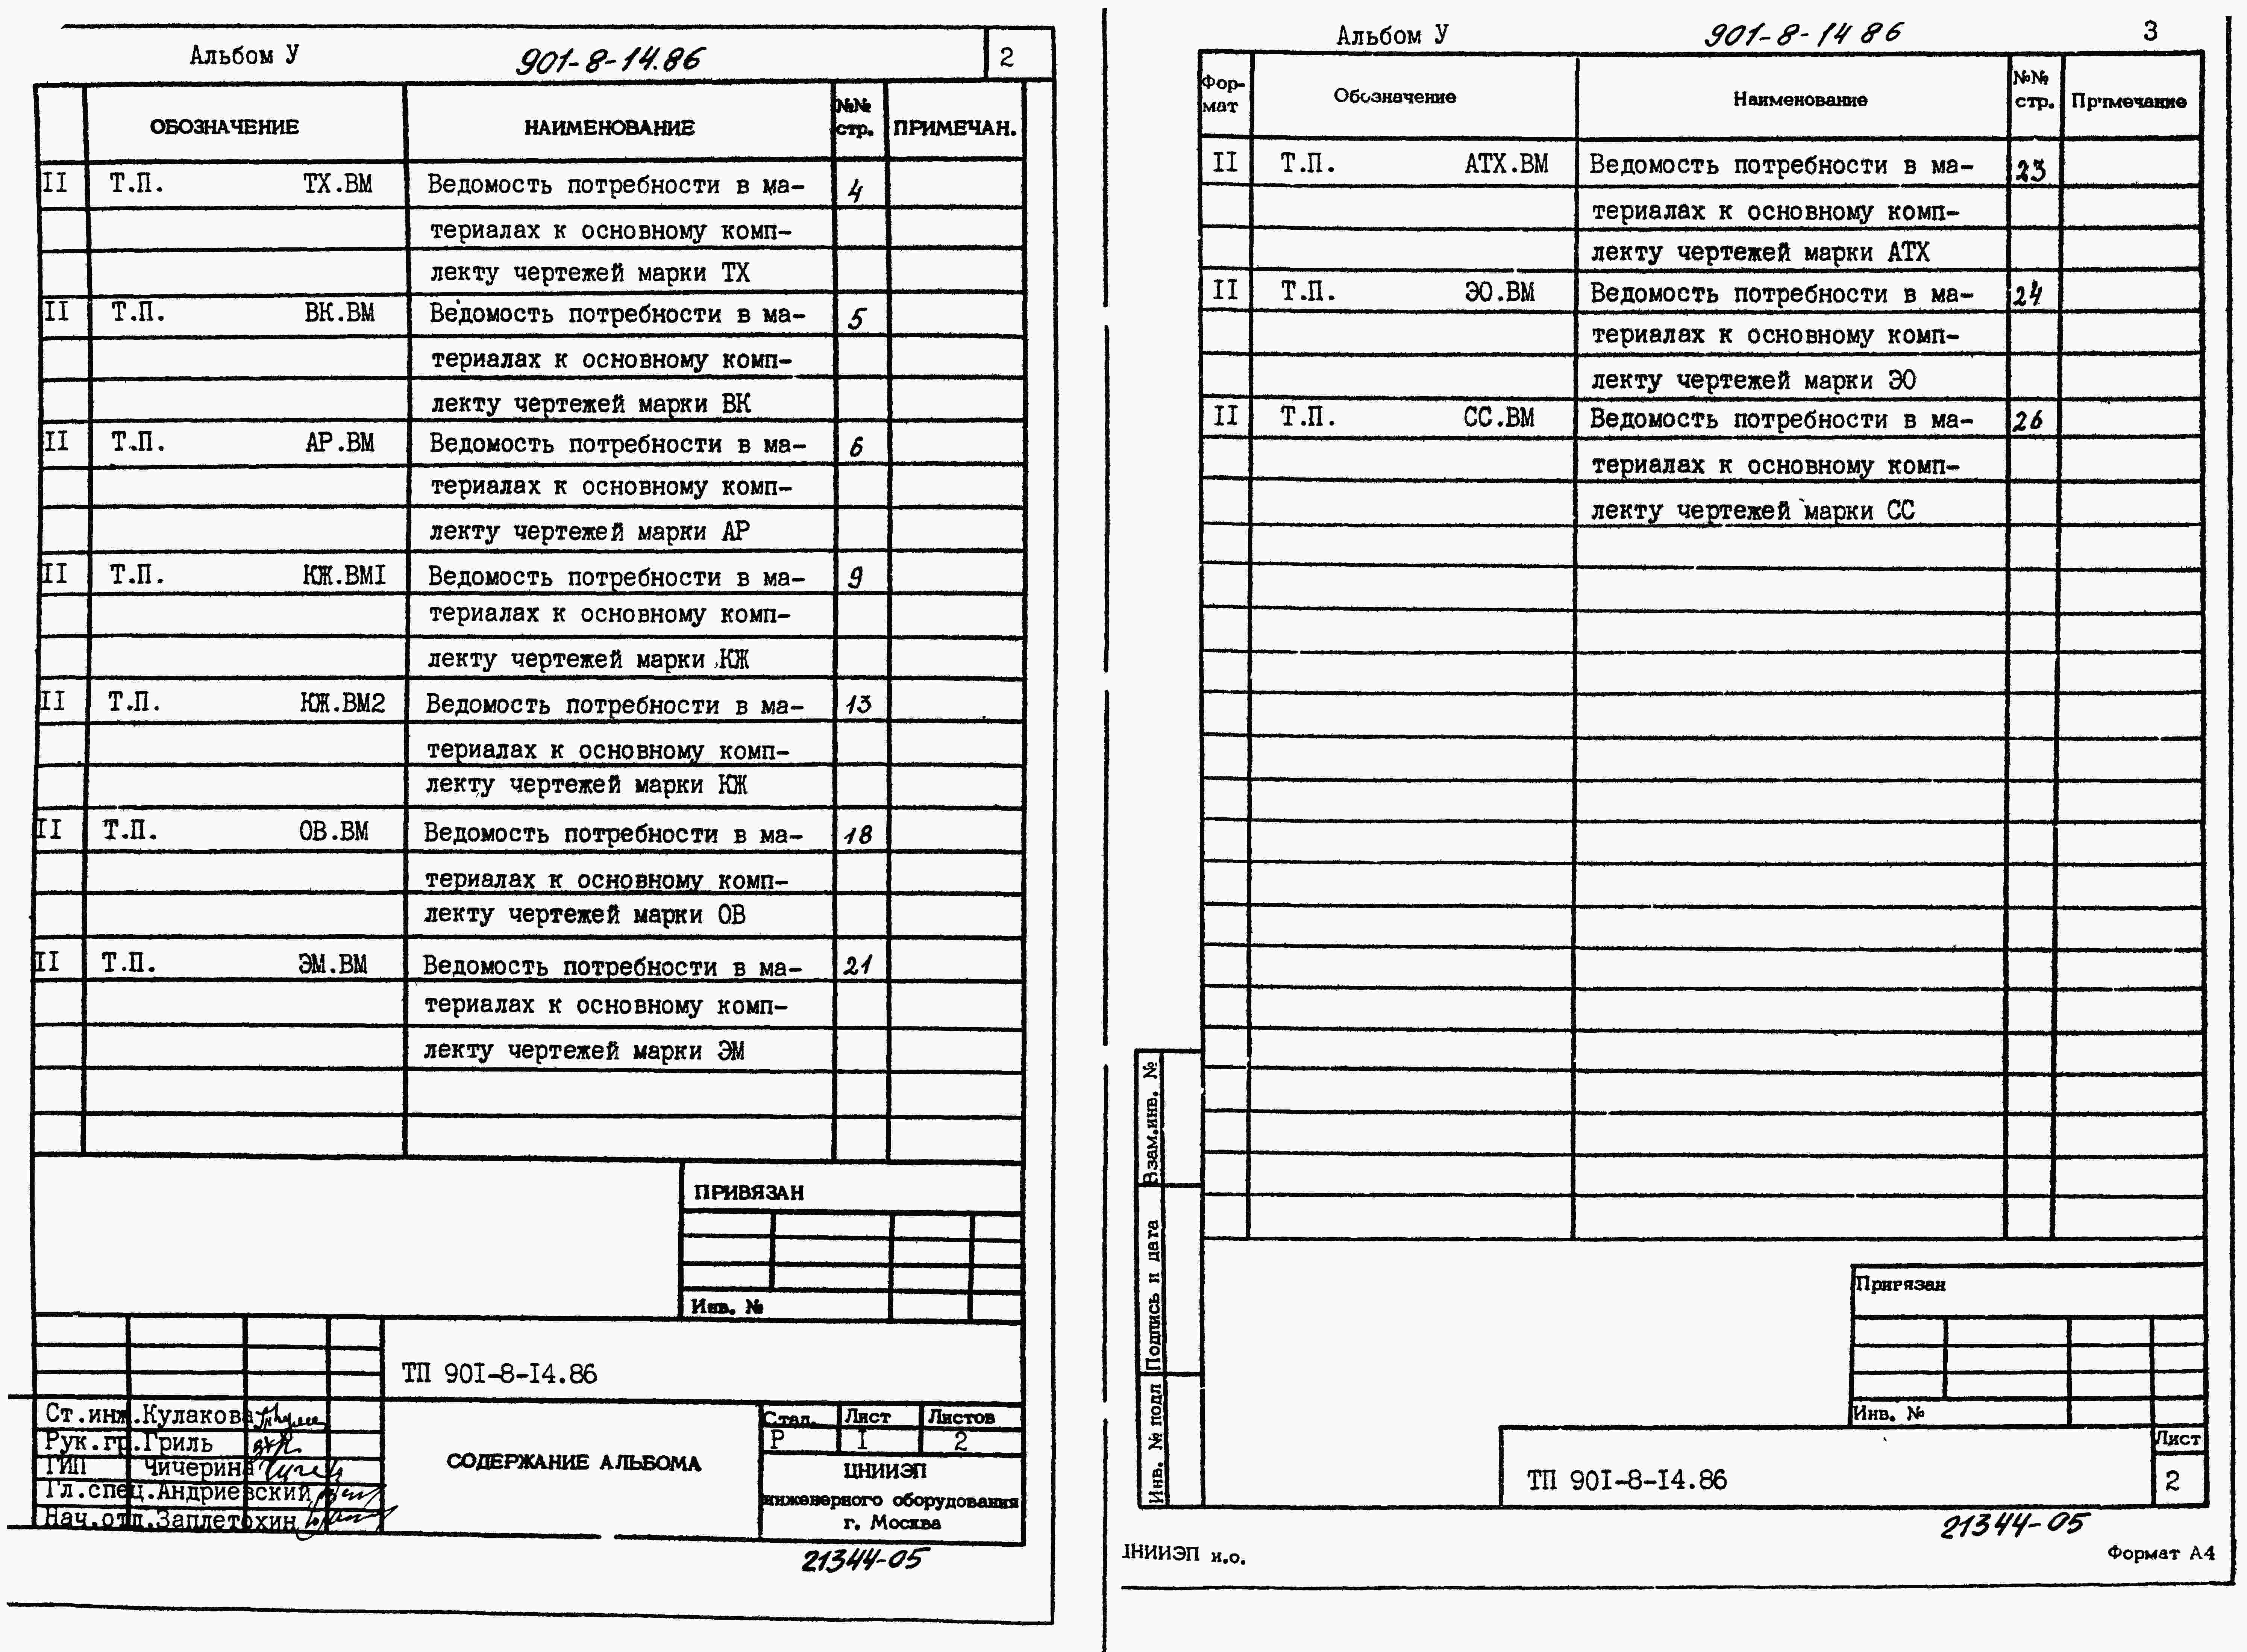 Альбом У 901-8-14.86 2
ОБОЗНАЧЕНИЕ НАИМЕНОВАНИЕ №№ стр. ПРИМЕЧАН.
II Т.П. ТХ.ВМ Ведомость потребности в ма- 4
териалах к основному комп-
лекту чертежей марки ТХ
II Т.П. ВК.ВМ Ведомость потребности в ма- 5
териалах к основному комп-
лекту чертежей марки ВК
II Т.П. АР.ВМ Ведомость потребности в ма- 6
териалах к основному комп-
лекту чертежей марки АР
II Т.П. КЖ.ВМI Ведомость потребности в ма- 9
териалах к основному комп-
лекту чертежей марки КЖ
II Т.П. КЖ.ВМ2 Ведомость потребности в ма- 13
териалах к основному комп-
лекту чертежей марки КЖ
II Т.П. ОВ.ВМ Ведомость потребности в ма- 18
териалах к основному комп-
лекту чертежей марки ОВ
II Т.П. ЭМ.ВМ Ведомость потребности в ма- 21
териалах к основному комп-
лекту чертежей марки ЭМ
ПРИВЯЗАН
Инв. №
ТП 90I-8-I4.86
Ст.инж.Кулакова
Рук.гр.Гриль
ГИП Чичерина
Гл.спец.Андриевский
Нач.отд.Заплетохин
СОДЕРЖАНИЕ АЛЬБОМА
Стад. Лист Листов
Р I 2
ЦНИИЭП
инженерного оборудования
г. Москва
21344-05
Альбом У 901-8-14 86 3
Фор-
мат
Обозначение Наименование №№ стр. Примечание
II Т.П. АТХ.ВМ Ведомость потребности в ма- 23
териалах к основному комп-
лекту чертежей марки АТХ
II Т.П. ЭО.ВМ Ведомость потребности в ма- 24
териалах к основному комп-
лекту чертежей марки ЭО
II Т.П. СС.ВМ Ведомость потребности в ма- 26
териалах к основному комп-
лекту чертежей марки СС
Взам.инв. №
Подпись и дата
Инв. № подл
Привязан
Инв. №
ТП 90I-8-I4.86
Лист
2
21344-05
ЦНИИЭП и.о. Формат А4